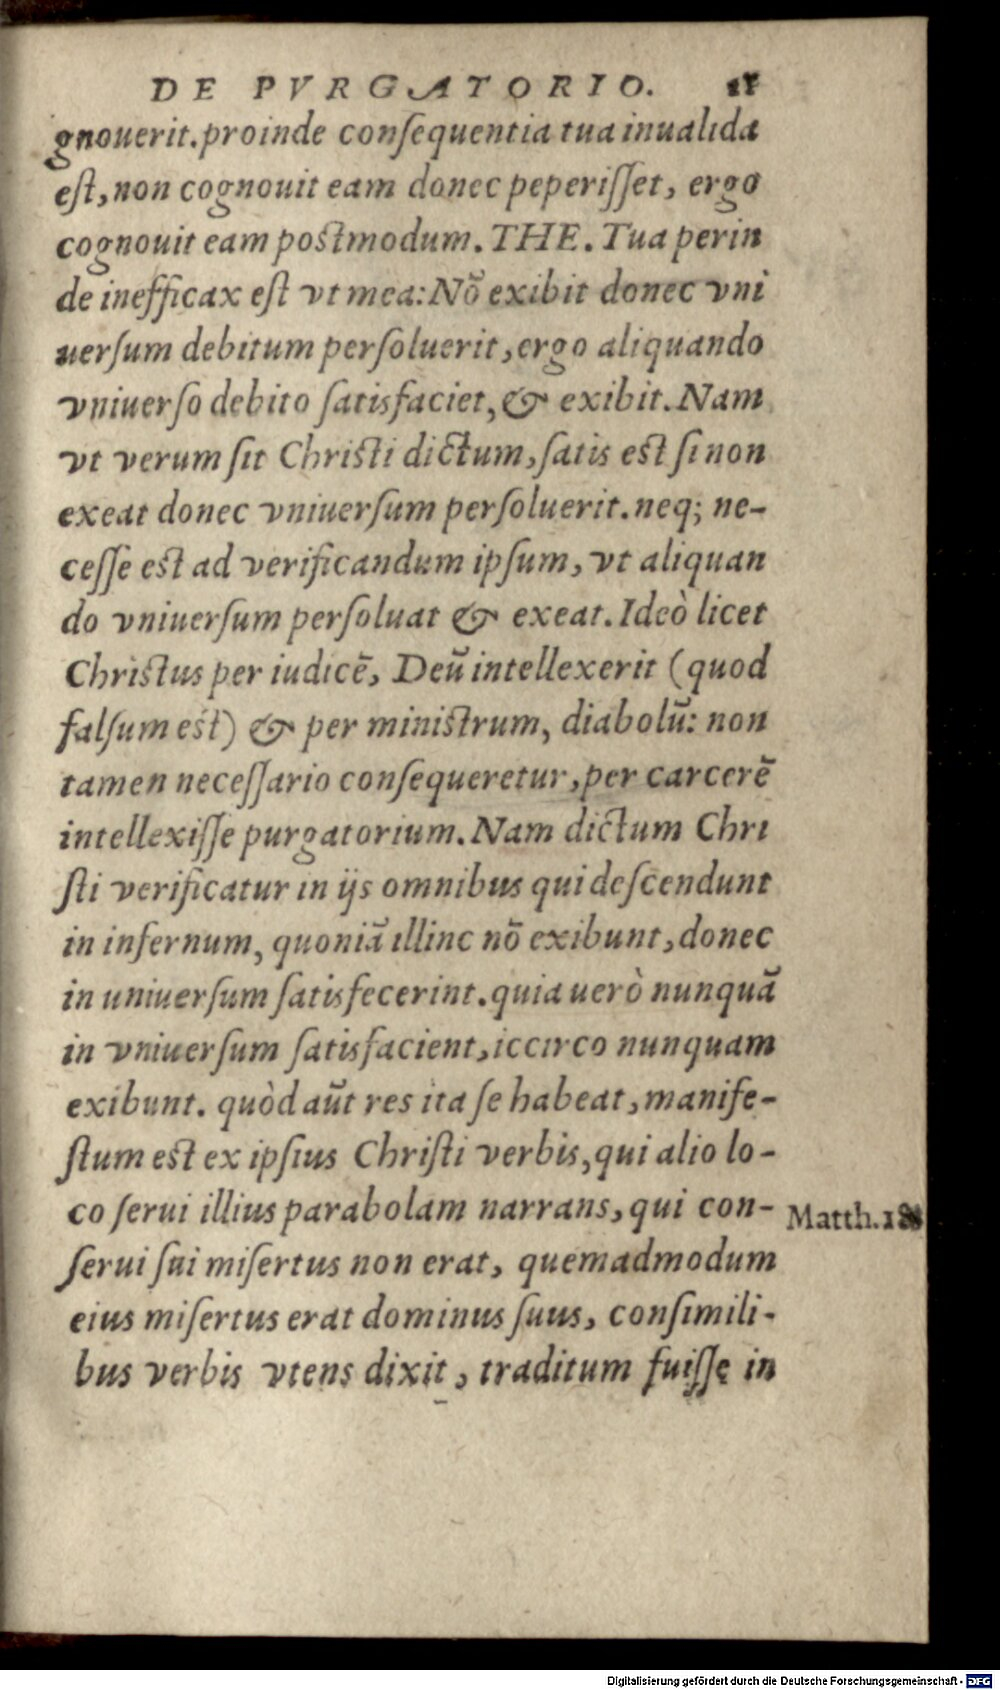 DE PVRGATORIO. 11
gnouerit.proinde conſequentia tua inualida
eſt,non cognouit eam donec peperiſſet, ergo
cognouit eam poſtmodum. THE. Tua perin
de inefficax eſt vt mea:Nõ exibit donec vni
uerſum debitum perſoluerit,ergo aliquando
vniuerſo debito ſatisfaciet,& exibit. Nam
vt verum ſit Chriſti dictum,ſatis eſt ſi non
exeat donec vniuerſum perſoluerit. neq; ne-
ceſſe eſt ad verificandum ipſum, vt aliquan
do vniuerſum perſoluat & exeat. Ideò licet
Chriſtus per iudicẽ, Deũ intellexerit (quod
falſum eſt) & per miniſtrum, diabolũ: non
tamen neceſſario conſequeretur,per carcerẽ
intellexiſſe purgatorium. Nam dictum Chri
ſti verificatur in ijs omnibus qui deſcendunt
in infernum, quoniã illinc nõ exibunt,donec
in uniuerſum ſatisfecerint.quia uerò nunquã
in vniuerſum ſatisfacient,iccirco nunquam
exibunt. quòd aũt res ita ſe habeat,manife-
ſtum eſt ex ipſius Chriſti verbis,qui alio lo-
co ſerui illius parabolam narrans,qui con-
ſerui ſui miſertus non erat, quemadmodum
eius miſertus erat dominus ſuus, conſimili-
bus verbis vtens dixit, traditum fuiſſe in
Matth.18
Digitalisierung gefördert durch die Deutsche Forschungsgemeinschaft - DFG